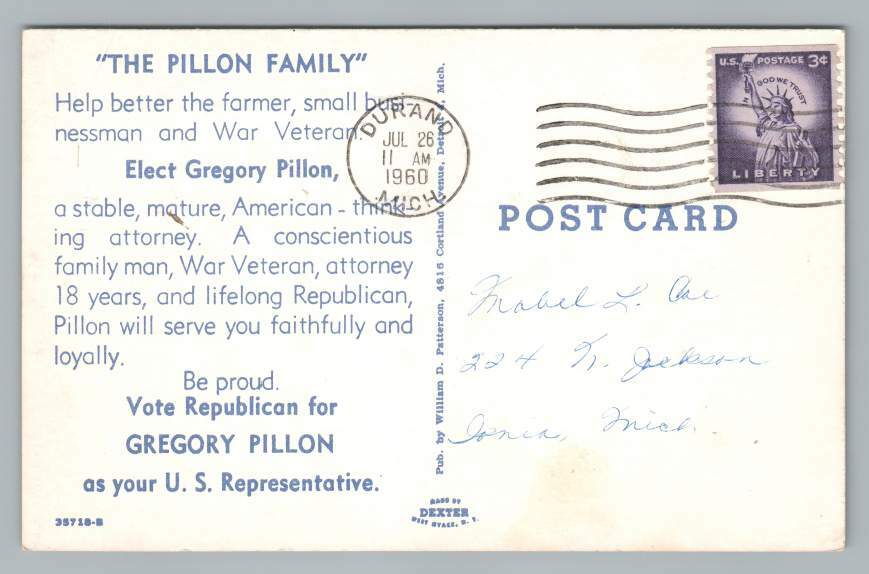 "THE PILLON FAMILY"
Help better the farmer, small busi-
nessman and War Veteran.
Elect Gregory Pillon,
a stable, mature, American - think-
ing attorney. A conscientious
family man, War Veteran, attorney
18 years, and lifelong Republican,
Pillon will serve you faithfully and
loyally.
Be proud.
Vote Republican for
GREGORY PILLON
as your U. S. Representative.
35718-B
Pub. by William D. Patterson, 4816 Cortland Avenue, Detroit, Mich.
MADE BY
DEXTER
WEST NYACK, N. Y.
DURAND
JUL 26
11 AM
1960
MICH.
U.S. POSTAGE 3¢
IN GOD WE TRUST
LIBERTY
POST CARD
Mabel L. Coe
224 N. Jackson
Ionia, Mich.